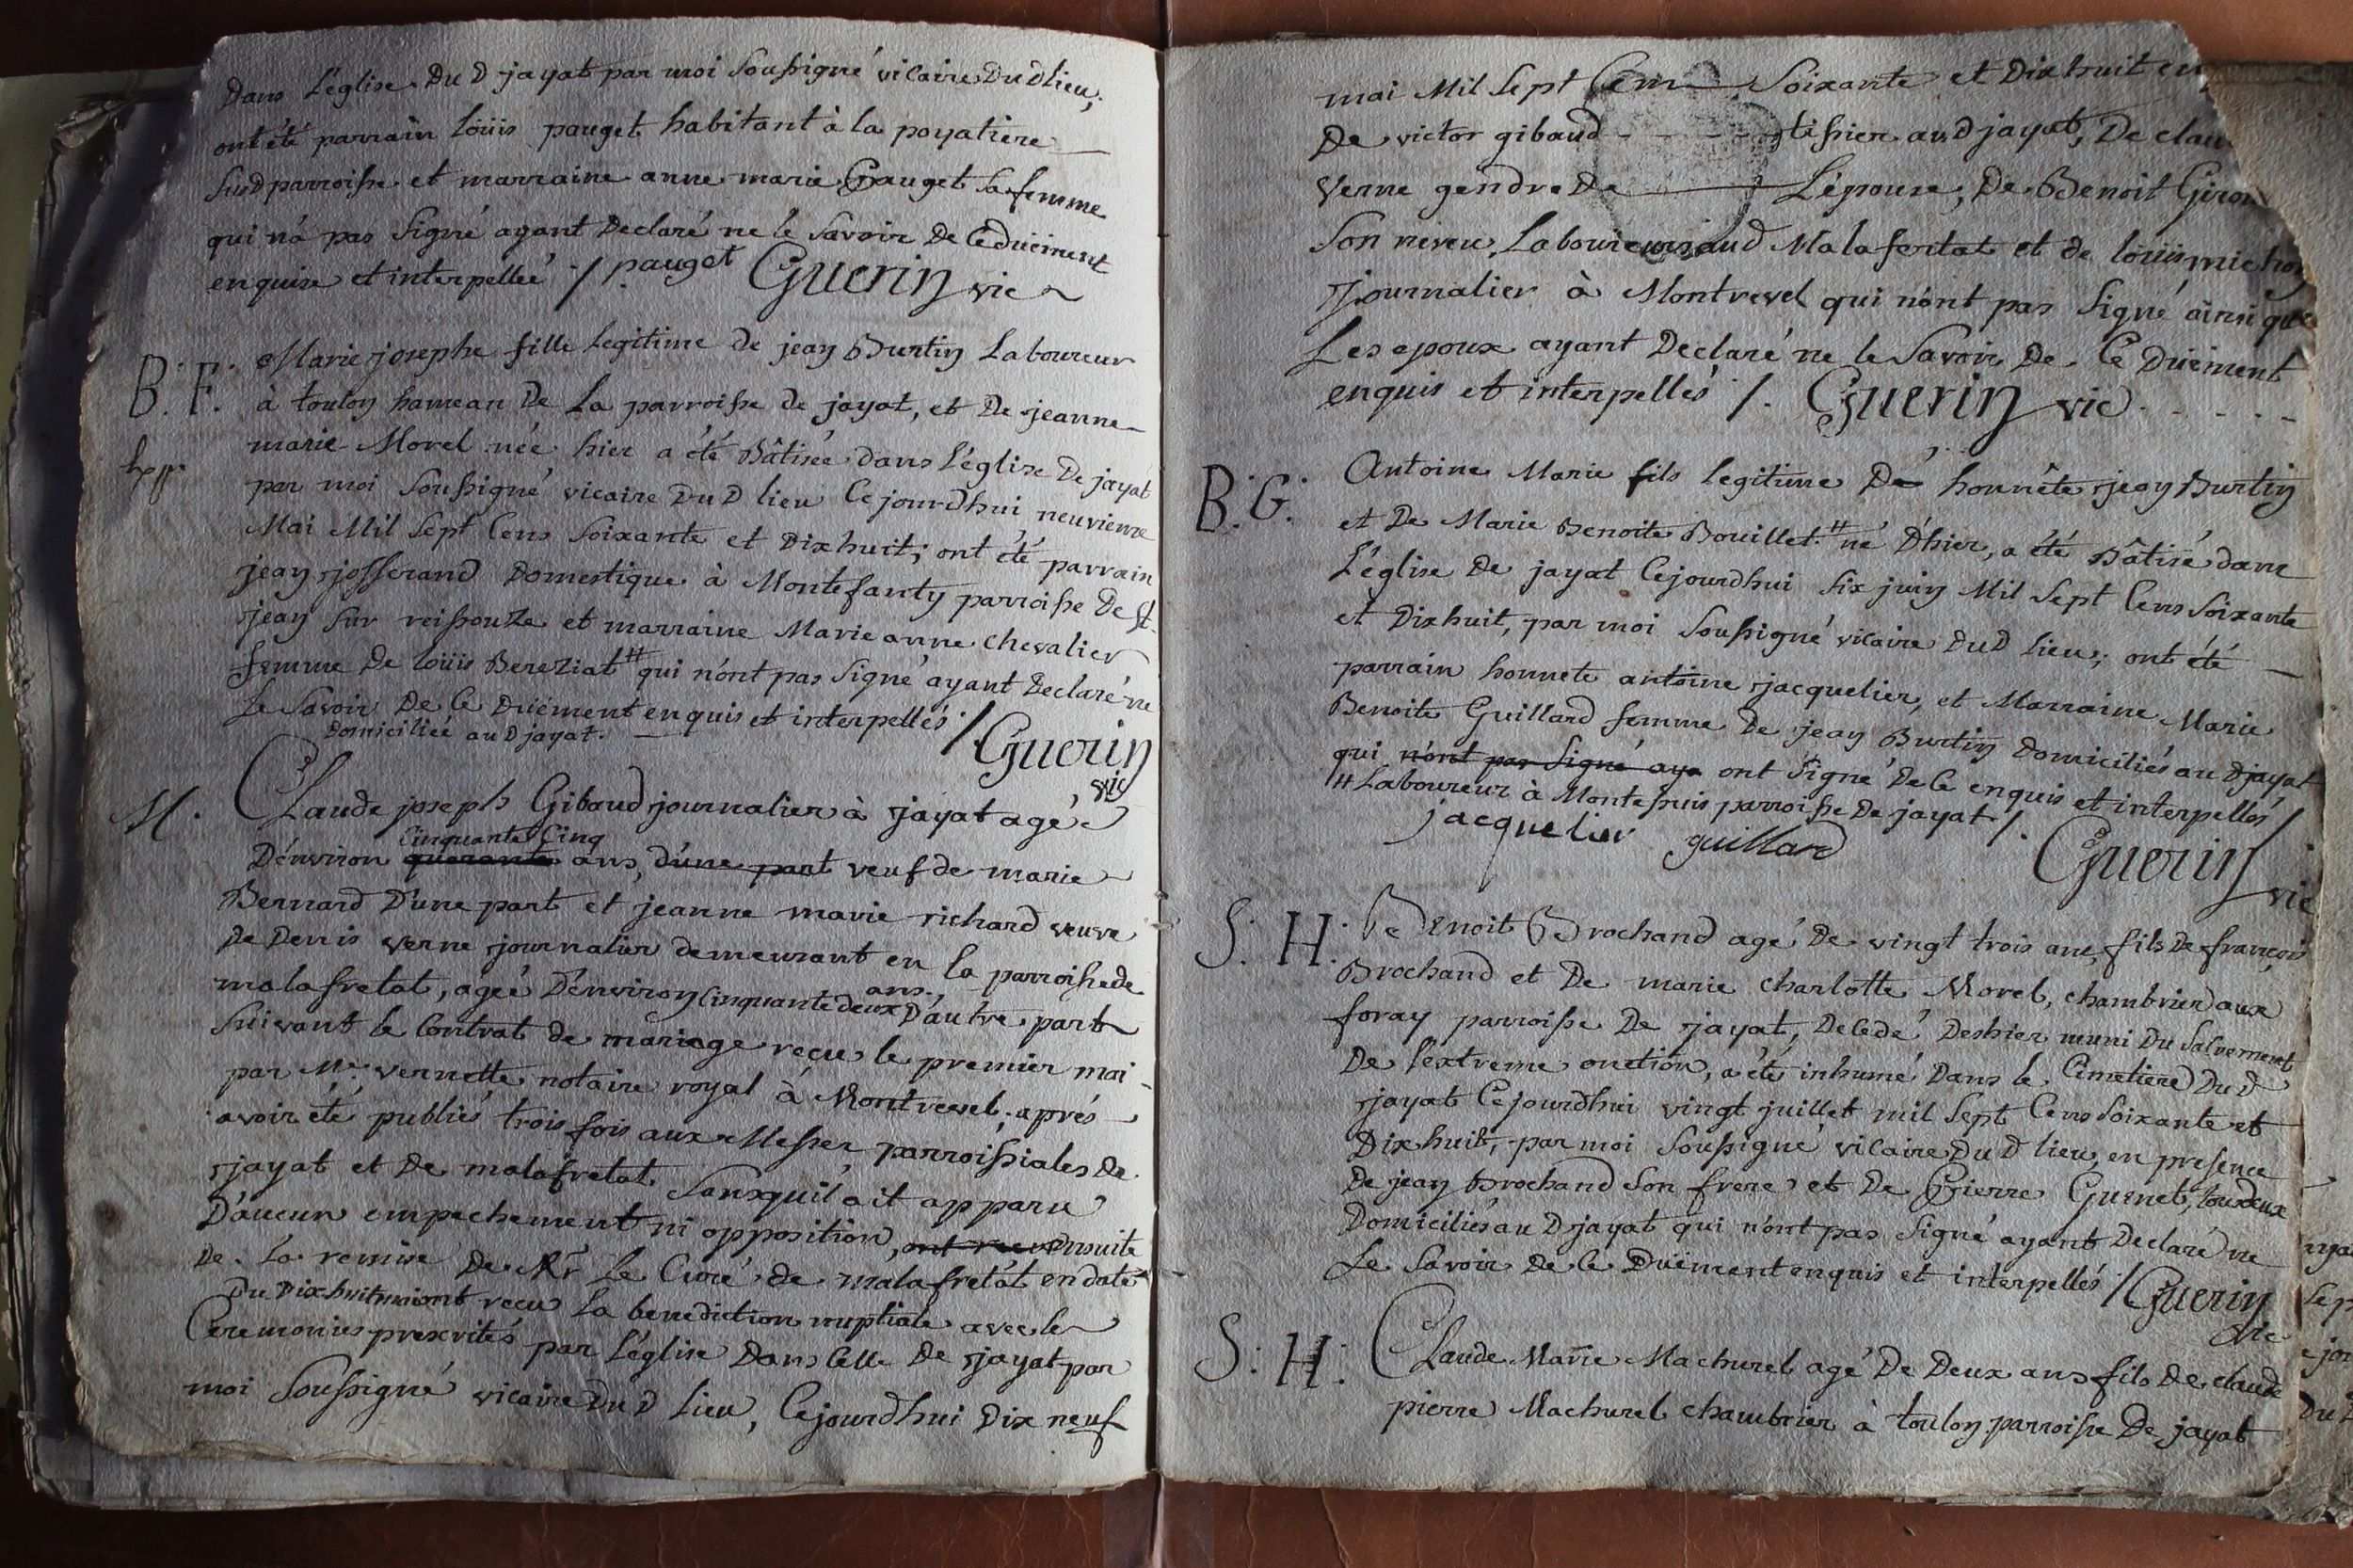 Dans L'église Du D jayat par moi Soussigné vicaire Du D lieu,
ont été parrain Loüis pauget habitant à la poyatiere
Susd parroisse et marraine anne marie Pauget Sa femme
qui n'a pas Signé ayant Declaré ne le Savoir De Ce düement
enquise et interpellée ./. pauget Guerin vic
B. F. Marie josephe fille legitime de jean Burtin Laboureur
à toulon hameau De La parroisse de jayat, et De jeanne
marie Morel née hier a été Bâtisée dans L'église De jayat
par moi Soussigné vicaire Du D lieu Ce jourd'hui neuvieme
Mai Mil Sept Cens Soixante et Dixhuit; ont été parrain
jean josserand Domestique à Montefanty parroisse De St.
jean Sur reissouze et marraine Marie anne chevalier
femme De loüis Bereziat # qui n'ont pas Signé ayant Declaré ne
Le Savoir De Ce Düement enquis et interpellés ./. Guerin
Domiciliée au D jayat. vic
M. Claude joseph Gibaud journalier à jayat agé
D'environ quarante Cinquante Cinq ans, d'une part veuf de marie
Bernard D'une part et jeanne marie richard veuve
De Denis verne journalier demeurant en la parroisse de
malafretat, agée D'environ Cinquante deux ans D'autre part
Suivant le Contrat de mariage reçu le premier mai
par Me. vernette notaire royal à Montrevel. aprés
avoir été publiés trois fois aux Messes parroissiales De
jayat et De malafretat Sans qu'il ait apparu
D'aucun empechement ni opposition, ont recu Ensuite
De La remise De Mr Le Curé de malafretat en date
Du Dixhuit mai ont recu La benediction nuptiale avec les
Ceremonies prescrites par L'église Dans Celle De jayat par
moi Soussigné vicaire Du D Lieu, Ce jourd'hui Dix neuf
mai Mil Sept Cens Soixante et Dixhuit en
De victor gibaud au D jayat, De clau
verne gendre De L'épouse, De Benoit Giron
Son neveu, Laboureurs aud Malafretat et de loüis michon
journalier à Montrevel qui n'ont pas Signé ainsi que
Les epoux ayant Declaré ne le Savoir De Ce Düement
enquis et interpellés ./. Guerin vic
B. G. Antoine Marie fils legitime De honnête jean Burtin
et De Marie Benoite Bouillet # né D'hier, a été Bâtisé dans
L'église De jayat Ce jourd'hui Six juin Mil Sept Cens Soixante
et Dixhuit, par moi Soussigné vicaire Du D lieu; ont été
parrain honnete antoine jacquelier, et Marraine Marie
Benoite Guillard femme De jean Burtin Domiciliés au D jayat
qui n'ont pas Signé aya ont Signé De Ce enquis et interpellés
# Laboureur à Montepuis parroisse De jayat ./.
jacquelier guillard Guerin vic
S. H. Benoit Brochand agé De vingt trois ans, fils De françois
Brochand et De marie charlotte Morel, chambrier aux
foray parroisse De jayat, Decedé Deshier muni Du Sacrement
De l'extreme onction, a été inhumé Dans le Cimetiere Du D
jayat Ce jourd'hui vingt juillet mil Sept Cens Soixante et
Dixhuit, par moi Soussigné vicaire Du D lieu, en presence
De jean Brochand Son frere et De Pierre Guenet, tous deux
Domiciliés au D jayat qui n'ont pas Signé ayant Declaré ne
Le Savoir De Ce Düement enquis et interpellés ./. Guerin
vic
S. H. Claude Marie Machurel agé De Deux ans fils De claude
pierre Machurel chambrier à toulon parroisse De jayat